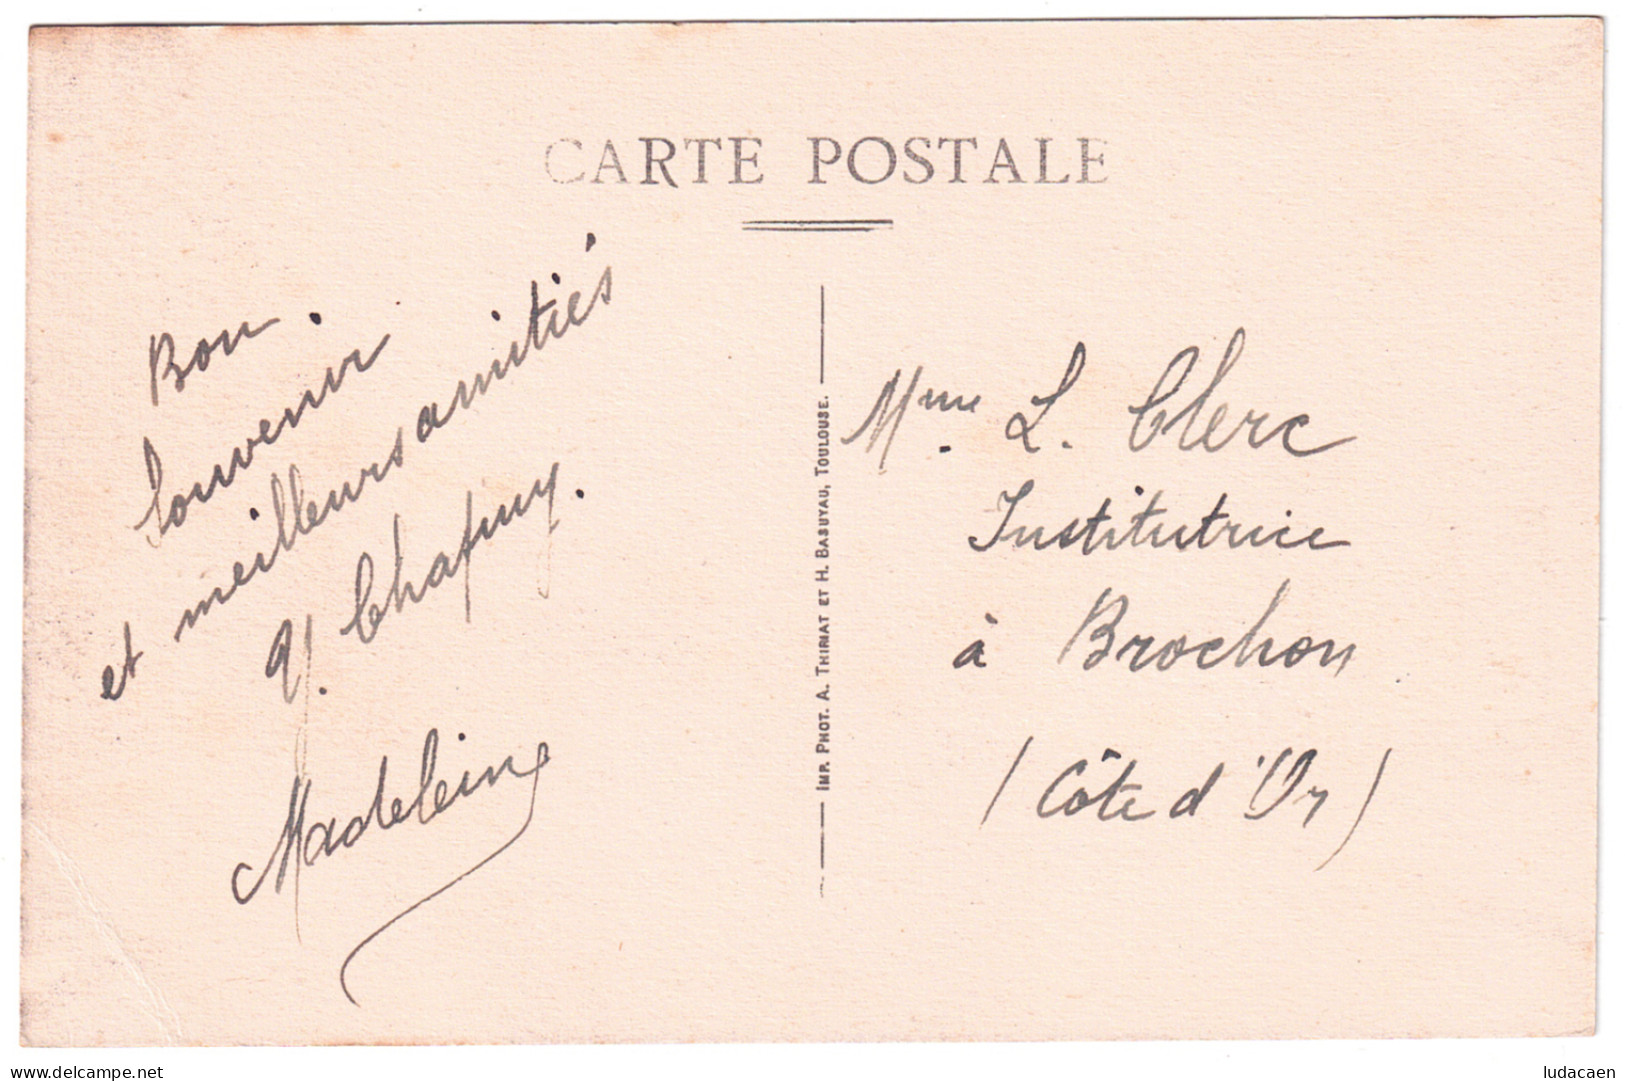 CARTE POSTALE
Bon.
souvenir
et meilleurs amitiés
Chapuy.
Madeleine
IMP. PHOT. A. THIRIAT ET H. BASUYAU, TOULOUSE.
Mme. L. Clerc
Institutrice
à Brochon
(Côte d'Or)
www.delcampe.net
ludacaen